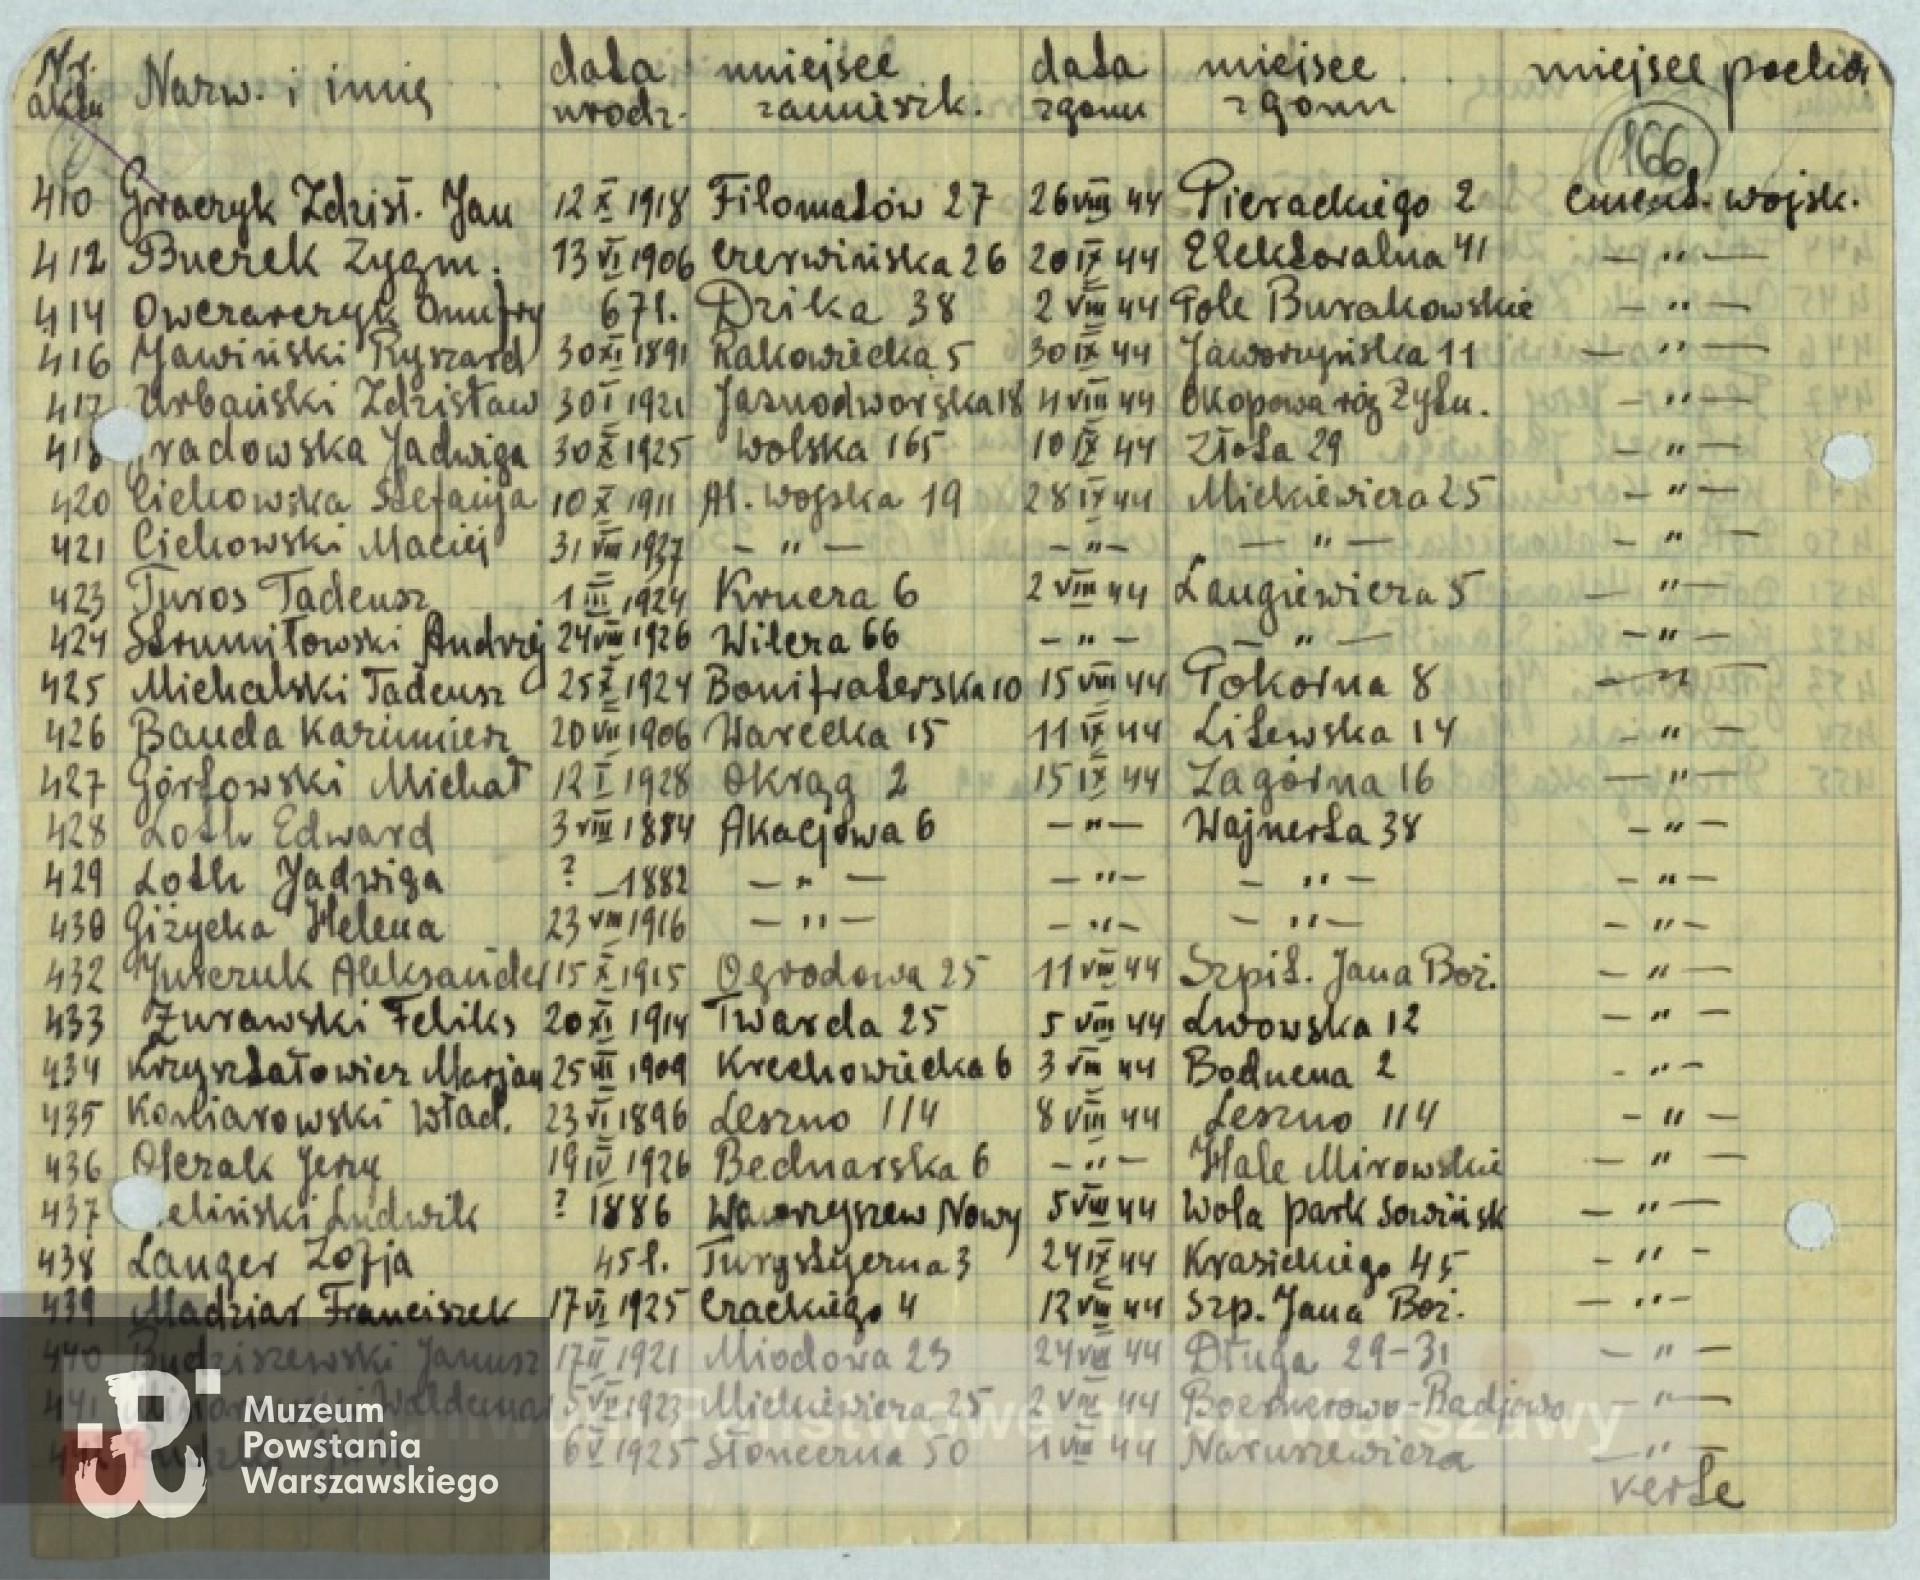 Nr. aktu Nazw. i imię data urodz. miejsce zamieszk. data zgonu miejsce zgonu miejsce poch.
166
410 Graczyk Zdzisł. Jan 12 X 1918 Filomatów 27 26 VIII 44 Pierackiego 2 Cment. wojsk.
412 Buczek Zygm. 13 VI 1906 Czerwińska 26 20 IX 44 Elektoralna 41 — " —
414 Owczarczyk Onufry 67 l. Dzika 38 2 VIII 44 Pole Burakowskie — " —
416 Jawiński Ryszard 30 XI 1891 Rakowiecka 5 30 IX 44 Jaworzyńska 11 — " —
417 Urbański Zdzisław 30 I 1921 Jasnodworska 18 4 VIII 44 Okopowa róg Żytn. — " —
418 radowska Jadwiga 30 X 1925 Wolska 165 10 IX 44 Złota 29 — " —
420 Cichowska Stefanja 10 X 1911 Al. Wojska 19 28 IX 44 Mickiewicza 25 — " —
421 Cichowski Maciej 31 VIII 1937 — " — — " — — " — — " —
423 Turos Tadeusz 1 III 1924 Krucza 6 2 VIII 44 Langiewicza 5 — " —
424 Strumiłowski Andrzej 24 VIII 1926 Wilcza 66 — " — — " — — " —
425 Michalski Tadeusz 25 X 1924 Bonifraterska 10 15 VIII 44 Pokorna 8 — " —
426 Banda Kazimierz 20 VII 1906 Warecka 15 11 IX 44 Litewska 14 — " —
427 Górtowski Michał 12 I 1928 Okrąg 2 15 IX 44 Zagórna 16 — " —
428 Loth Edward 3 VIII 1884 Akacjowa 6 — " — Wajnerta 38 — " —
429 Loth Jadwiga ? — 1882 — " — — " — — " — — " —
430 Giżycka Helena 23 VIII 1916 — " — — " — — " — — " —
432 Jurczuk Aleksander 15 X 1915 Ogrodowa 25 11 VIII 44 Szpit. Jana Boż. — " —
433 Żurawski Feliks 20 XI 1914 Twarda 25 5 VIII 44 Lwowska 12 — " —
434 Krzyształowicz Marjan 25 III 1909 Krechowiecka 6 3 VIII 44 Boduena 2 — " —
435 Komiarowski Wład. 23 VI 1896 Leszno 114 8 VIII 44 Leszno 114 — " —
436 Olczak Jerzy 19 IV 1926 Bednarska 6 — " — Hale Mirowskie — " —
437 eliński Ludwik ? 1886 Wawrzyszew Nowy 5 VIII 44 Wola park Sowińsk — " —
438 Langer Zofja 45 l. Turystyczna 3 24 IX 44 Krasickiego 45 — " —
439 Madziar Franciszek 17 VI 1925 Czackiego 4 12 VIII 44 Szp. Jana Boż. — " —
440 Budziszewski Janusz 17 II 1921 Miodowa 23 24 VIII 44 Długa 29-31 — " —
441 Waldemar 5 VII 1923 Mickiewicza 25 2 VIII 44 Boernerowo-Radjowo — " —
6 V 1925 Słoneczna 50 1 VIII 44 Naruszewicza — " —
verte
Muzeum
Powstania
Warszawskiego
Państwowe m. st. Warszawy